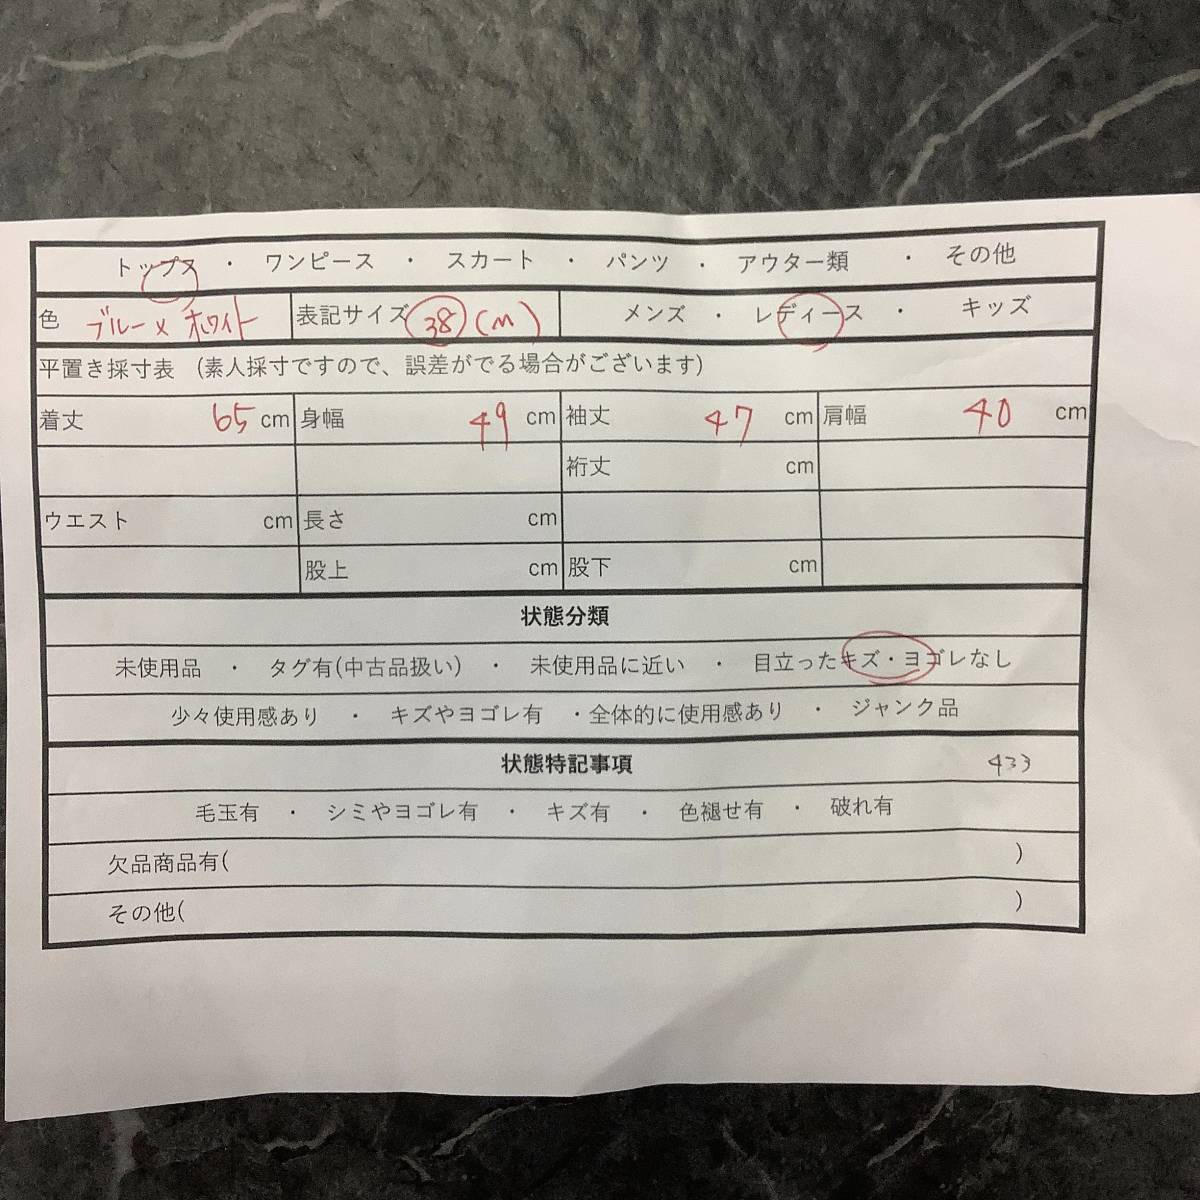 トップス ・ ワンピース ・ スカート ・ パンツ ・ アウター類 ・ その他
色 ブルー×ホワイト 表記サイズ 38 (M) メンズ ・ レディース ・ キッズ
平置き採寸表 (素人採寸ですので、誤差がでる場合がございます)
着丈 65 cm 身幅 49 cm 袖丈 47 cm 肩幅 40 cm
裄丈 cm
ウエスト cm 長さ cm
股上 cm 股下 cm
状態分類
未使用品 ・ タグ有(中古品扱い) ・ 未使用品に近い ・ 目立ったキズ・ヨゴレなし
少々使用感あり ・ キズやヨゴレ有 ・全体的に使用感あり ・ ジャンク品
状態特記事項 433
毛玉有 ・ シミやヨゴレ有 ・ キズ有 ・ 色褪せ有 ・ 破れ有
欠品商品有( )
その他( )